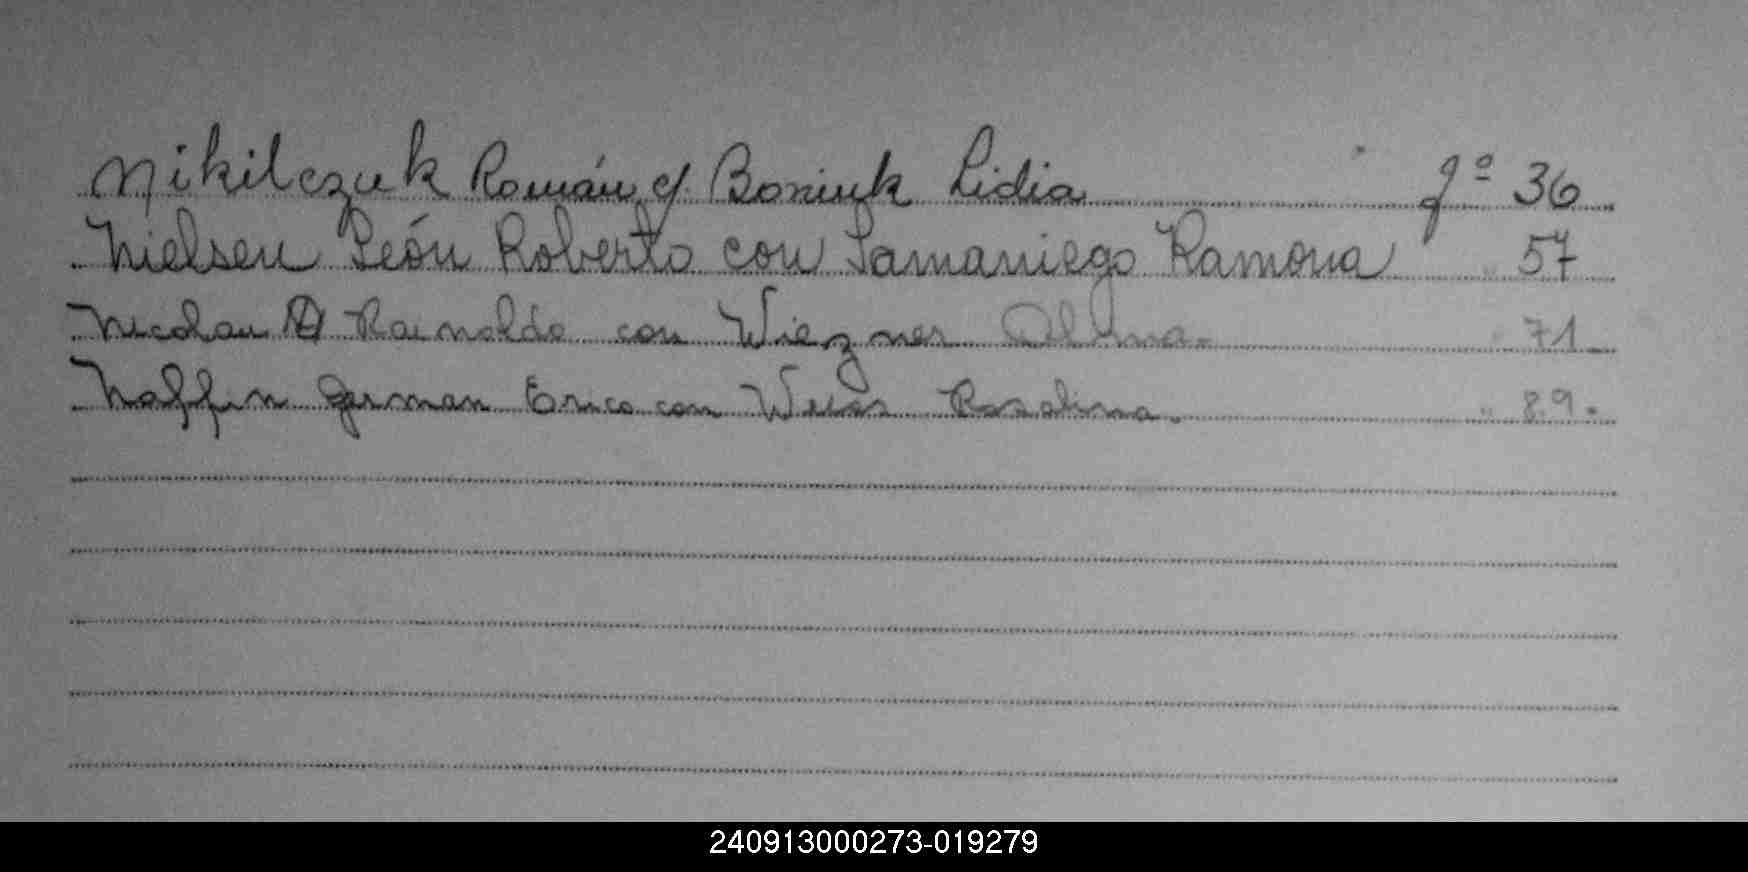 Nikilczuk Román c/. Boniuk Lidia fº 36
Nielsen León Roberto con Samaniego Ramona " 57
Nicolau Rainoldo con Wiezner " 71
Naffin German Erico con Rosalina. " 89.
240913000273-019279